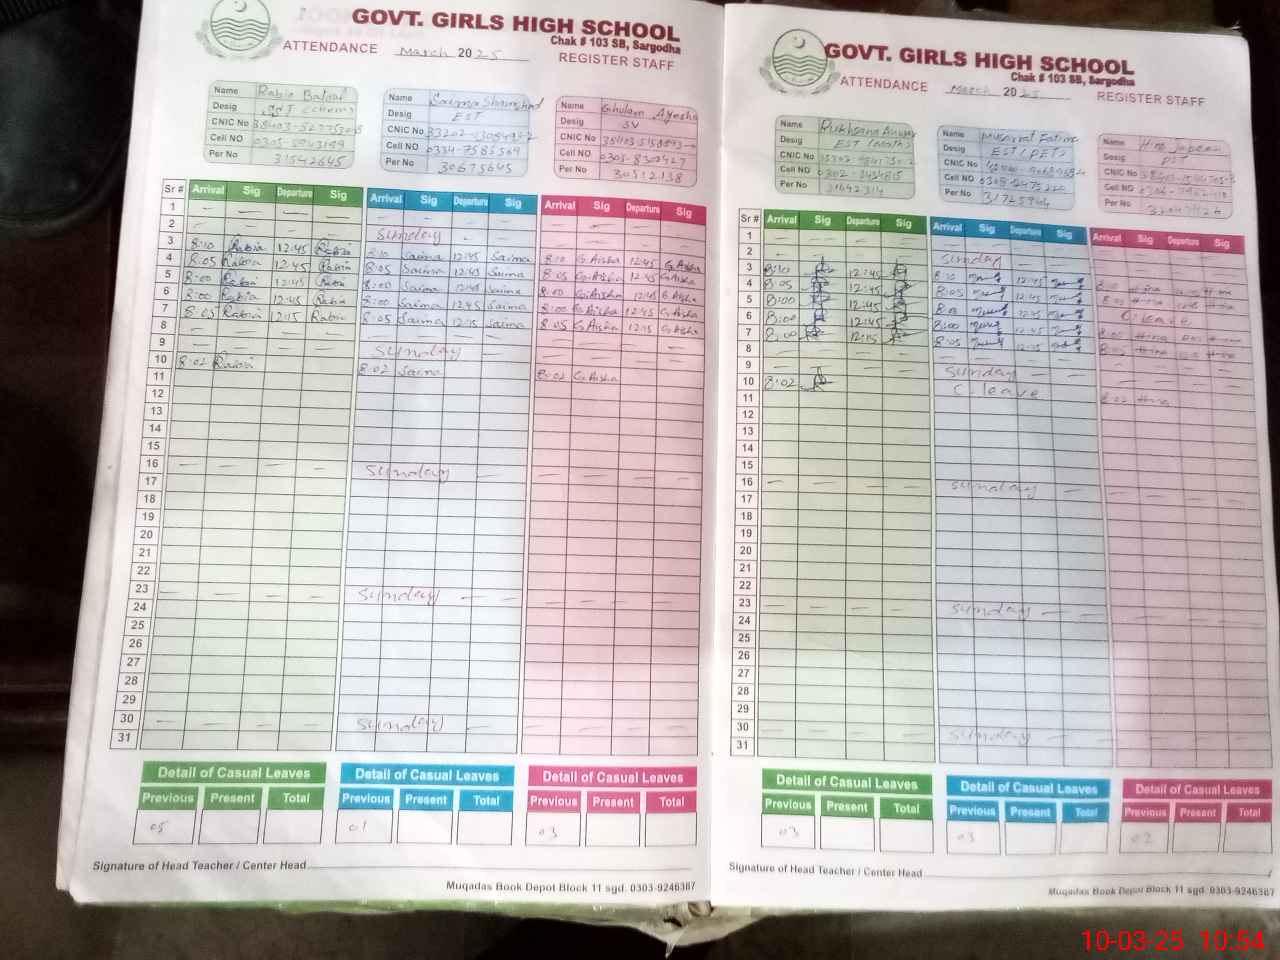 GOVT. GIRLS HIGH SCHOOL
Chak # 103 SB, Sargodha
ATTENDANCE March 2025 REGISTER STAFF
Name Rabia Batool
Desig
CNIC No
Cell NO
Per No 31542645
Name Saima Shamshad
Desig EST
CNIC No
Cell NO 0334-7585569
Per No 30675645
Name Ghulam Ayesha
Desig SV
CNIC No
Cell NO
Per No 30512138
Sr # Arrival Sig Departure Sig Arrival Sig Departure Sig Arrival Sig Departure Sig
1
2 Sunday
3 8:10 Rabia 12:45 Rabia 8:10 Saima 12:45 Saima 8:10 G.Aisha 12:45 G.Aisha
4 8:05 Rabia 12:45 Rabia 8:05 Saima 12:45 Saima 8:05 G.Aisha 12:45 G.Aisha
5 8:00 Rabia 12:45 Rabia 8:00 Saima 12:45 Saima 8:00 G.Aisha 12:45 G.Aisha
6 8:00 Rabia 12:45 Rabia 8:00 Saima 12:45 Saima 8:00 G.Aisha 12:45 G.Aisha
7 8:05 Rabia 12:15 Rabia 8:05 Saima 12:15 Saima 8:05 G.Aisha 12:15 G.Aisha
8
9 Sunday
10 8:02 Rabia 8:02 Saima 8:02 G.Aisha
11
12
13
14
15
16 Sunday
17
18
19
20
21
22
23 Sunday
24
25
26
27
28
29
30 Sunday
31
Detail of Casual Leaves Detail of Casual Leaves Detail of Casual Leaves
Previous Present Total Previous Present Total Previous Present Total
05 01 03
Signature of Head Teacher / Center Head
Muqadas Book Depot Block 11 sgd. 0303-9246387
GOVT. GIRLS HIGH SCHOOL
Chak # 103 SB, Sargodha
ATTENDANCE March 2025 REGISTER STAFF
Name Rukhsana Anwar
Desig EST (Maths)
CNIC No
Cell NO
Per No 31642314
Name Musarrat Fatima
Desig EST (PET)
CNIC No
Cell NO
Per No
Name Hina
Desig PST
CNIC No
Cell NO
Per No
Sr # Arrival Sig Departure Sig Arrival Sig Departure Sig Arrival Sig Departure Sig
1
2 Sunday
3 8:10 12:45 8:10 12:45 Hina Hina
4 8:05 12:45 8:05 12:45 Hina Hina
5 8:00 12:45 8:00 12:45 C. leave
6 8:00 12:45 8:00 12:45 Hina Hina
7 8:00 12:15 8:05 12:15 Hina Hina
8
9 Sunday
10 8:02 C. leave 8:02 Hina
11
12
13
14
15
16 Sunday
17
18
19
20
21
22
23 Sunday
24
25
26
27
28
29
30 Sunday
31
Detail of Casual Leaves Detail of Casual Leaves Detail of Casual Leaves
Previous Present Total Previous Present Total Previous Present Total
03 03 02
Signature of Head Teacher / Center Head
Muqadas Book Depot Block 11 sgd. 0303-9246387
10-03-25 10:54